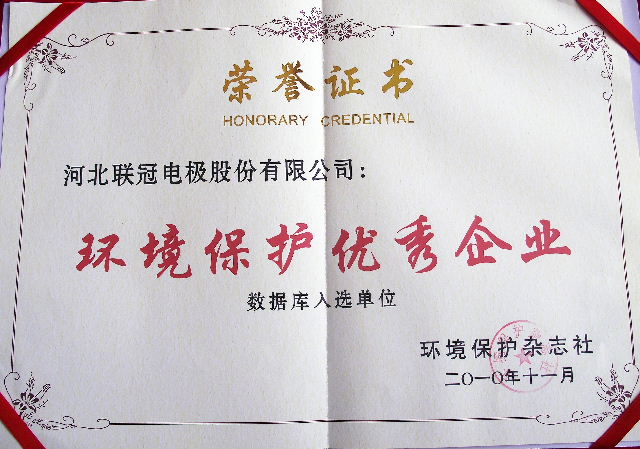 荣誉证书
HONORARY CREDENTIAL
河北联冠电极股份有限公司：
环境保护优秀企业
数据库入选单位
环境保护杂志社
二〇一〇年十一月